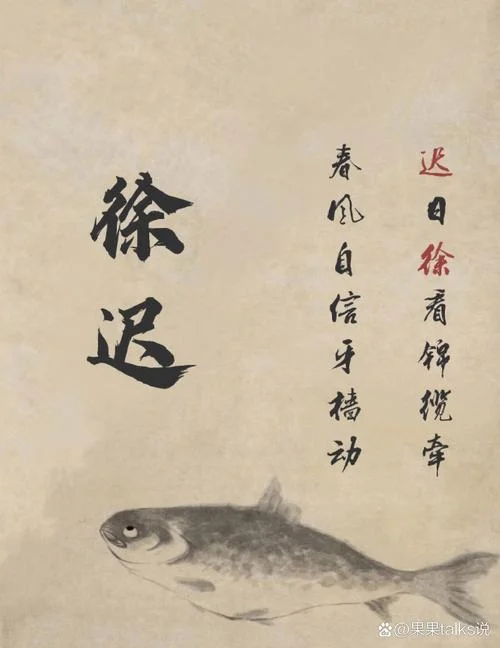 徐迟
春风自信牙樯动
迟日徐看锦缆牵
果果talks说